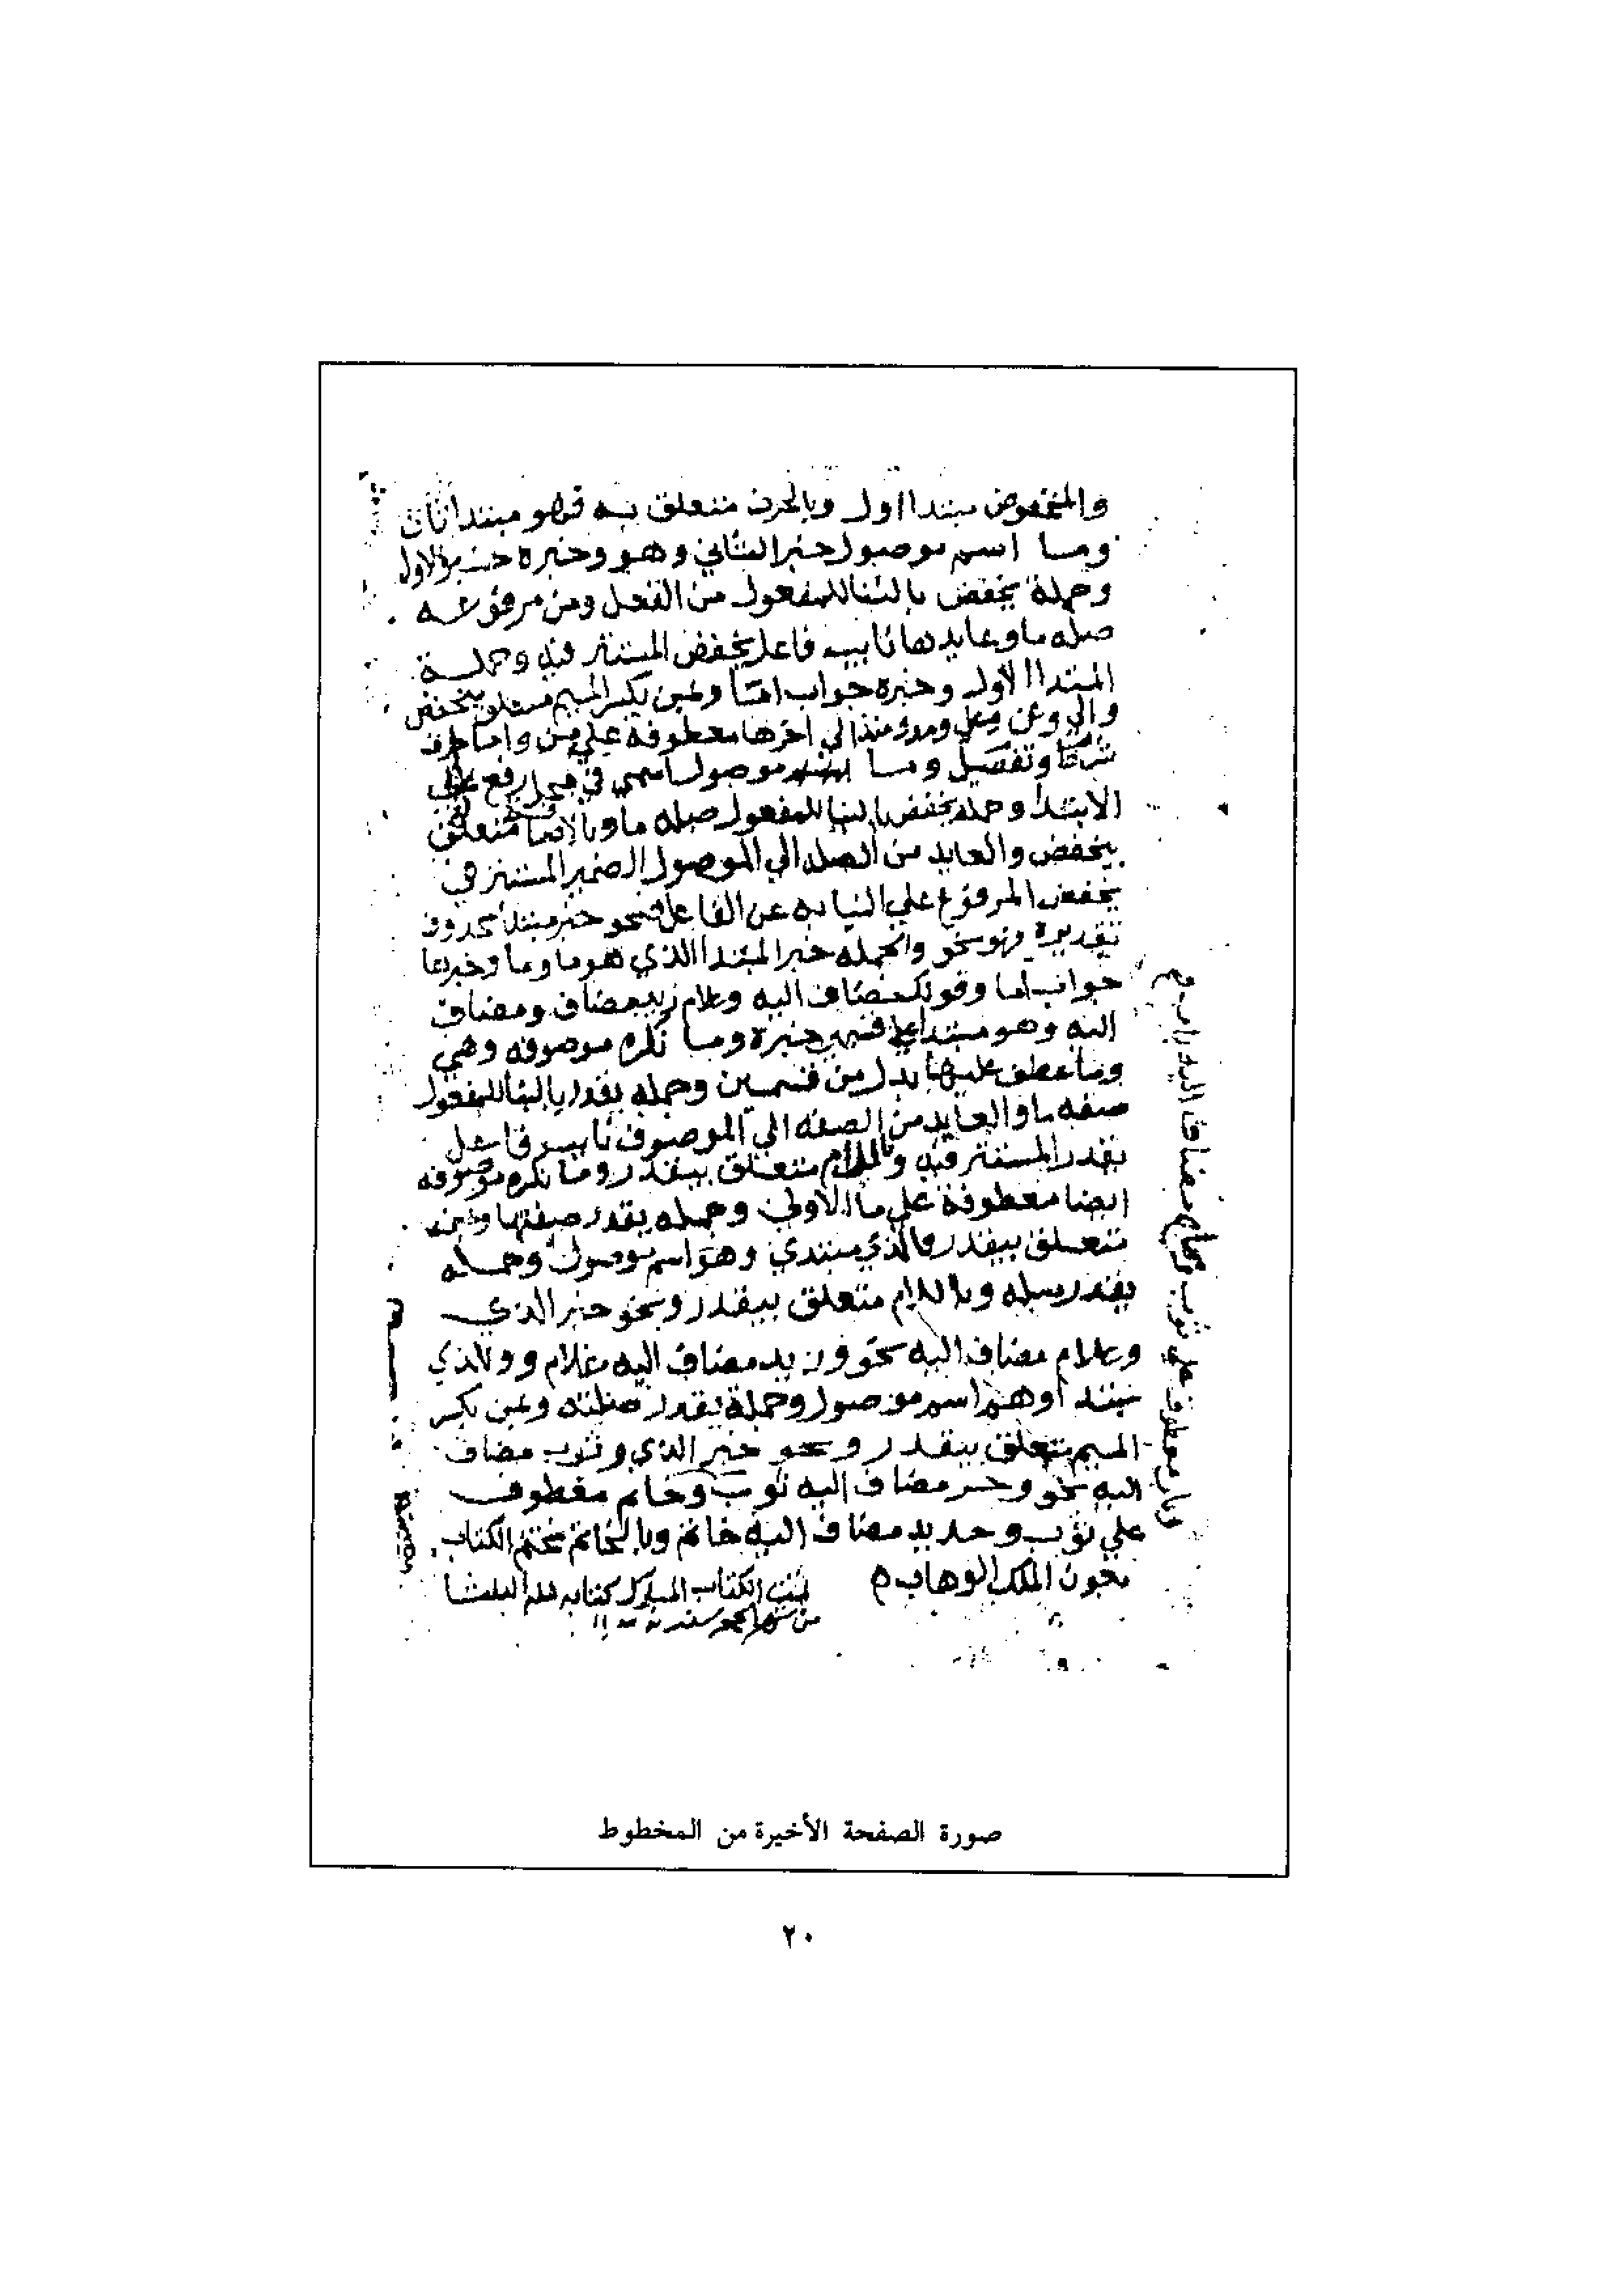 والمخفوض مبتدا اول وبالحرف متعلق به فهو مبتدا ثان
وما اسم موصول خبر الثاني وهو وخبره خبر الاول
وجملة يخفض بالبنا للمفعول من الفعل ومن مرفوعه
صله ما وعايدها نايب فاعل يخفض المستتر فيه وجملة
المبتدا الاول وخبره جواب امّا وبمن بكسر الميم متعلق بيخفض
والي وعن وعلي ومذ ومنذ الي اخرها معطوفة علي من واما حرف
شرط وتفصيل وما موصول اسمي في محل رفع علي
الابتدا وجملة يخفض بالبنا للمفعول صله ما وبالاضافة متعلق
بيخفض والعايد من الصله الي الموصول الضمير المستتر في
يخفض المرفوع علي النيابه عن الفاعل فنحو خبر مبتدا محذوف
تقديره فهو نحو والجمله خبر المبتدا الذي هو ما وما وخبرها
جواب اما وقولك مضاف اليه وغلام زيد مضاف ومضاف
اليه وهو مبتدا علي قسمين خبره وما نكره موصوفه وهي
وما عطف عليها بدل من قسمين وجمله يقدر بالبنا للمفعول
صفه ما والعايد من الصفه الي الموصوف نايب فاعل
يقدر المستتر فيه وباللام متعلق بيقدر وما نكره موصوفه
ايضا معطوفة علي ما الاولي وجمله يقدر صفتها وبمن
متعلق بيقدر فالذي مبتدي وهو اسم موصول وجمله
يقدر صله وباللام متعلق بيقدر ونحو خبر الذي
وغلام مضاف اليه نحو وزيد مضاف اليه غلام و والذي
مبتدا وهو اسم موصول وجملة يقدر صلته وبمن بكسر
الميم متعلق بيقدر ونحو خبر الذي وثوب مضاف
اليه نحو وخز مضاف اليه ثوب وخاتم معطوف
علي ثوب وحديد مضاف اليه خاتم وبالخاتم نختم الكتاب
بعون الملك الوهاب م تمت الكتاب المبارك كتابه
من شهر سنه
وباب معطوف علي ثوب وساج مضاف اليه باب
صورة الصفحة الأخيرة من المخطوط
٢٠